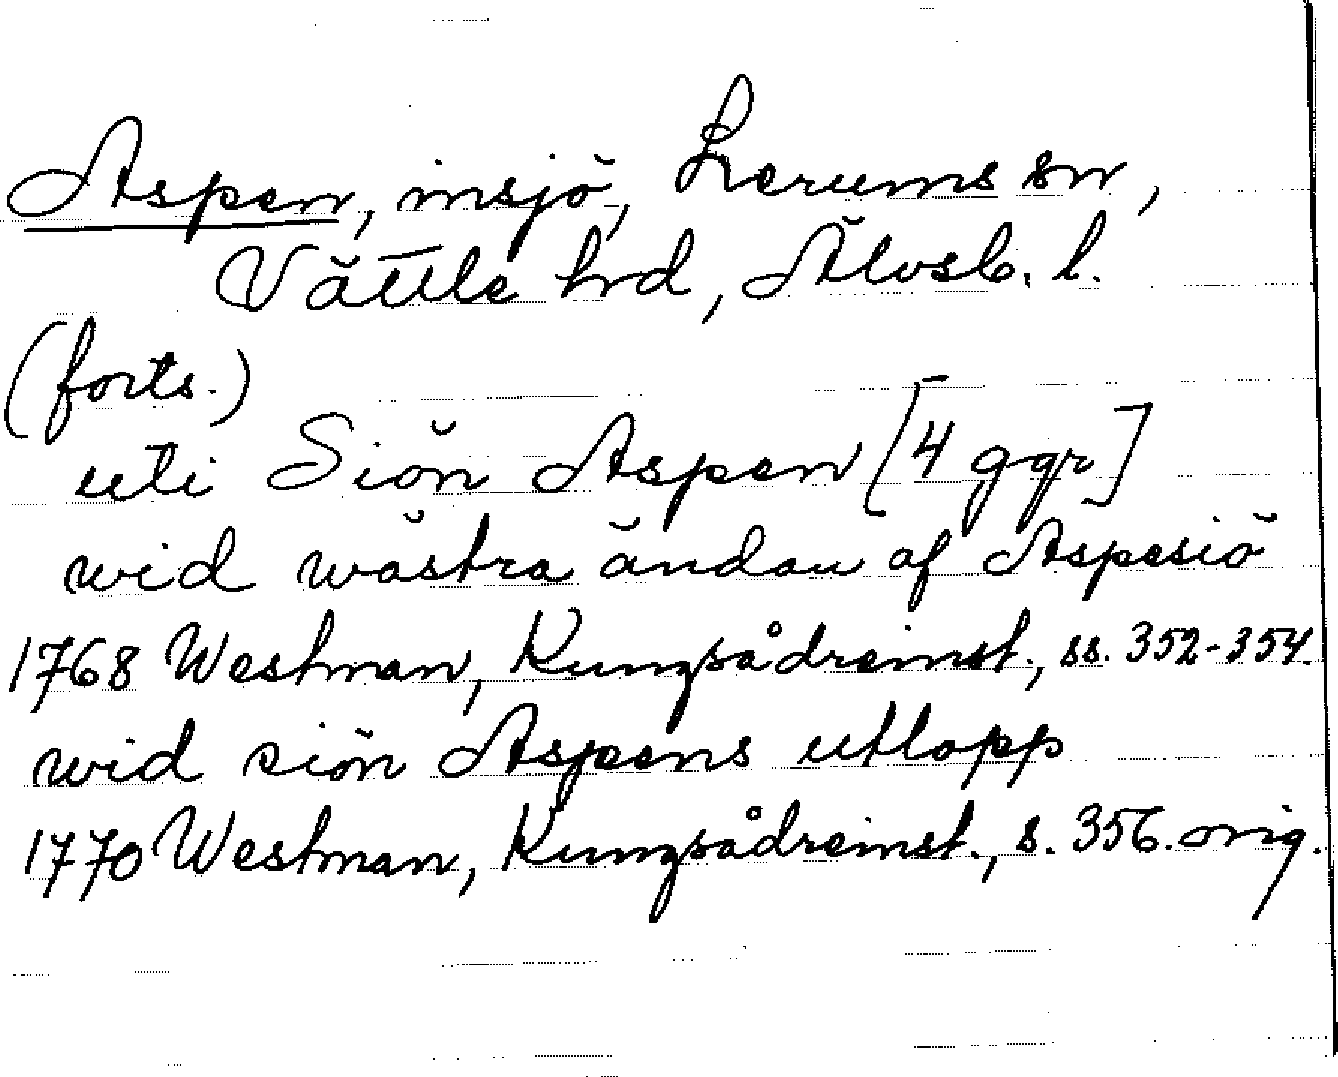 Aspen, insjö, Lerums sn,
Vättle hrd, Älvsb. l.
(forts.)
uti Siön Aspen [4 ggr]
wid wästra ändan af Aspesiö
1768 Westman, Kungsådreinst., ss. 352-354.
wid siön Aspens utlopp
1770 Westman, Kungsådreinst., s. 356. orig.